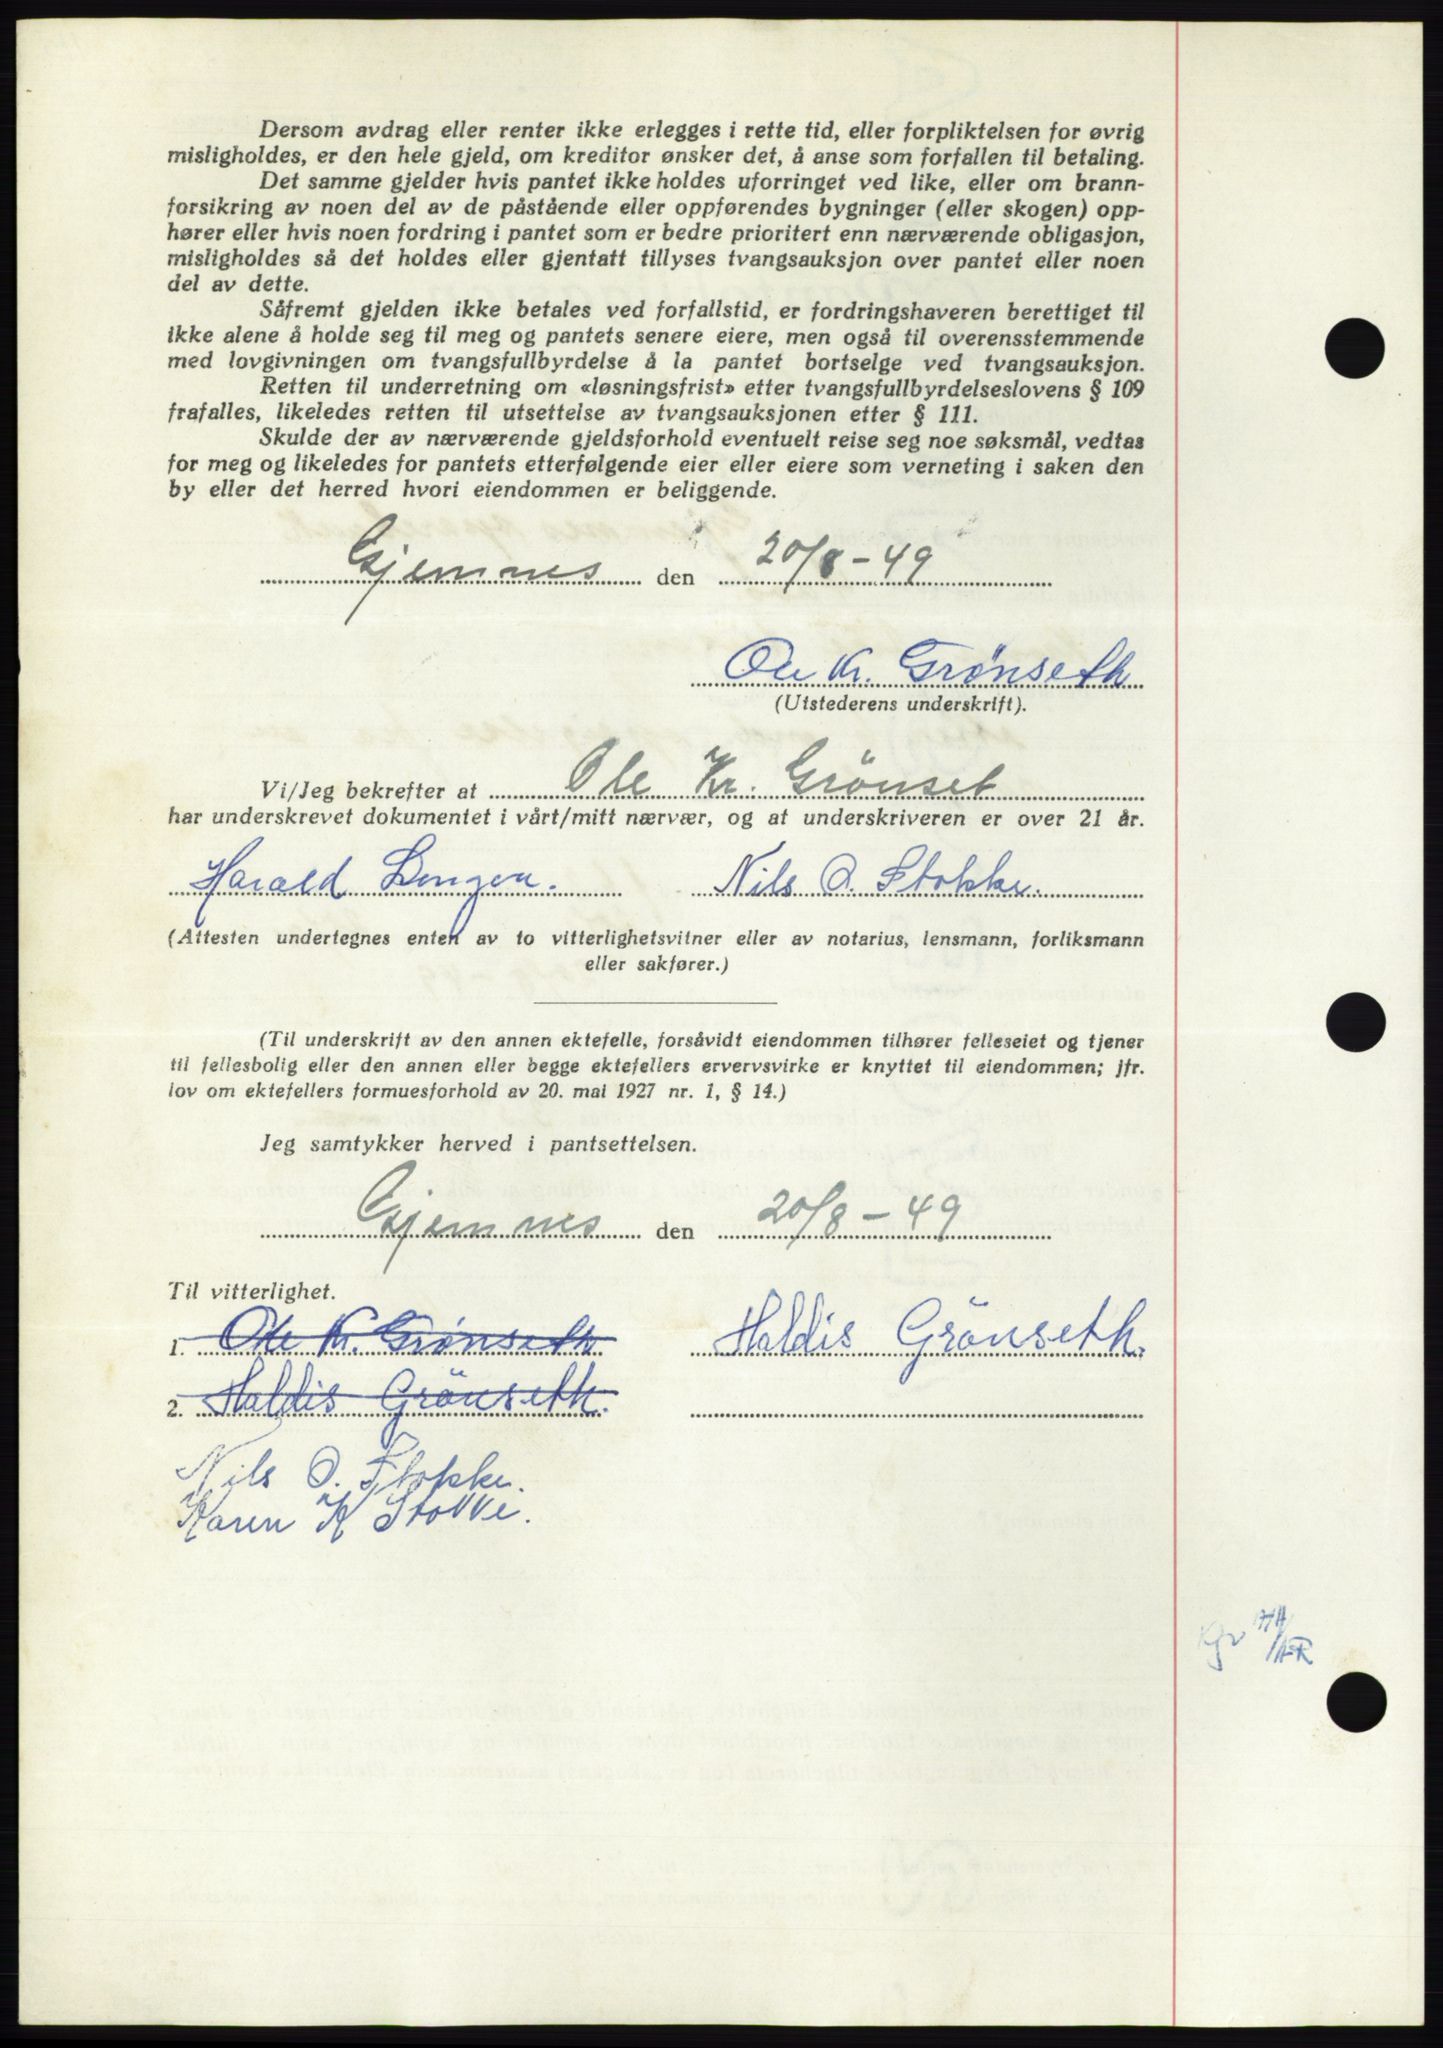 Dersom avdrag eller renter ikke erlegges i rette tid, eller forpliktelsen for øvrig
misligholdes, er den hele gjeld, om kreditor ønsker det, å anse som forfallen til betaling.
Det samme gjelder hvis pantet ikke holdes uforringet ved like, eller om brann-
forsikring av noen del av de påstående eller oppførendes bygninger (eller skogen) opp-
hører eller hvis noen fordring i pantet som er bedre prioritert enn nærværende obligasjon,
misligholdes så det holdes eller gjentatt tillyses tvangsauksjon over pantet eller noen
del av dette.
Såfremt gjelden ikke betales ved forfallstid, er fordringshaveren berettiget til
ikke alene å holde seg til meg og pantets senere eiere, men også til overensstemmende
med lovgivningen om tvangsfullbyrdelse å la pantet bortselge ved tvangsauksjon.
Retten til underretning om «løsningsfrist» etter tvangsfullbyrdelseslovens § 109
frafalles, likeledes retten til utsettelse av tvangsauksjonen etter § 111.
Skulde der av nærværende gjeldsforhold eventuelt reise seg noe søksmål, vedtas
for meg og likeledes for pantets etterfølgende eier eller eiere som verneting i saken den
by eller det herred hvori eiendommen er beliggende.
Gjemnes den 20/8-49
Ole Kr. Grønseth
(Utstederens underskrift).
Vi/Jeg bekrefter at Ole Kr. Grönset
har underskrevet dokumentet i vårt/mitt nærvær, og at underskriveren er over 21 år.
Harald Nils O. Stokke.
(Attesten undertegnes enten av to vitterlighetsvitner eller av notarius, lensmann, forliksmann
eller sakfører.)
(Til underskrift av den annen ektefelle, forsåvidt eiendommen tilhører felleseiet og tjener
til fellesbolig eller den annen eller begge ektefellers ervervsvirke er knyttet til eiendommen; jfr.
lov om ektefellers formuesforhold av 20. mai 1927 nr. 1, § 14.)
Jeg samtykker herved i pantsettelsen.
Gjemnes den 20/8-49
Til vitterlighet.
1. Ole Kr. Grønseth Haldis Grönseth.
2. Haldis Grönseth.
Nils O. Stokke.
Karen K Stokke.